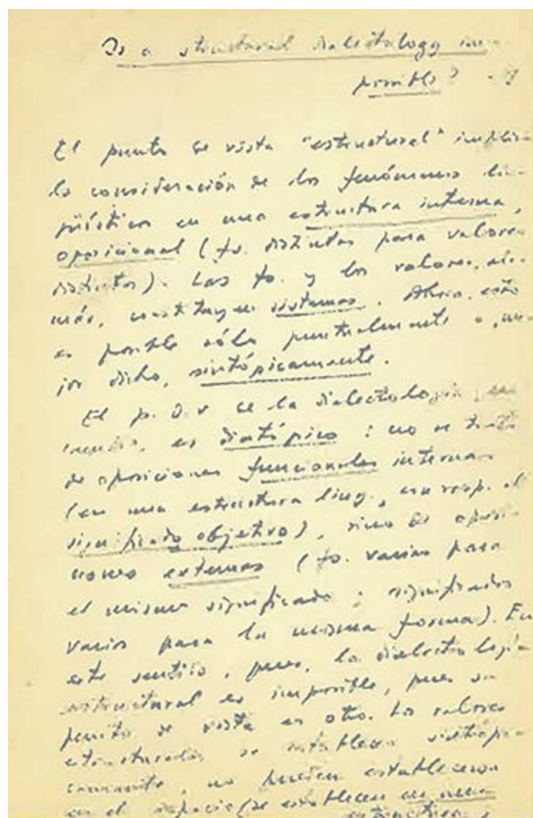 Is a structural dialectology im-
possible?
El punto de vista "estructural" implica
la consideración de los fenómenos lin-
güísticos en una estructura interna,
oposicional (fo. distintas para valores
distintos). Las fo. y los valores, ade-
más, constituyen sistemas. Ahora, esto
es posible sólo puntualmente o, me-
jor dicho, sintópicamente.
El p. d. v. de la dialectología, en
cambio, es diatópico: no se trata
de oposiciones funcionales internas
(en una estructura ling., con resp. al
significado objetivo), sino de oposi-
ciones externas (fo. varias para
el mismo significado; significados
varios para la misma forma). En
este sentido, pues, la dialectología
estructural es imposible, pues su
punto de vista es otro. Los valores
estructurales se establecen sintópi-
camente, no pueden establecerse
en el espacio (se establecen en una
estructura,